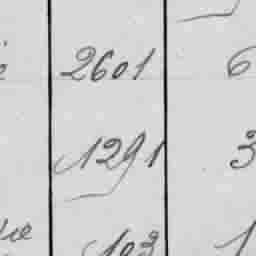 2601 6
1291 3
103 1